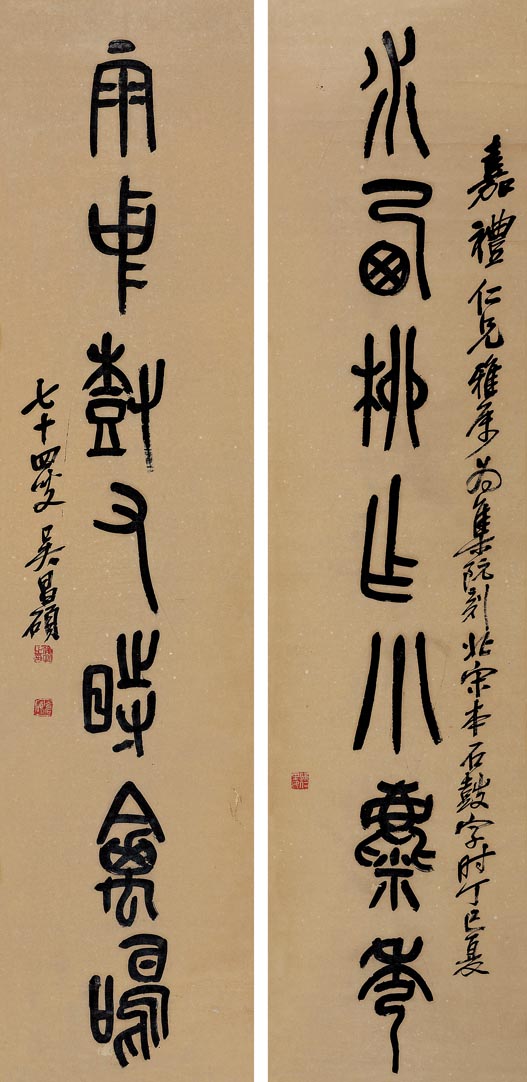 嘉禮仁兄雅屬為集阮刻北宋本石鼓字時丁巳夏
水西柳乍小
雨樹又時禽鳴
七十四叟吳昌碩